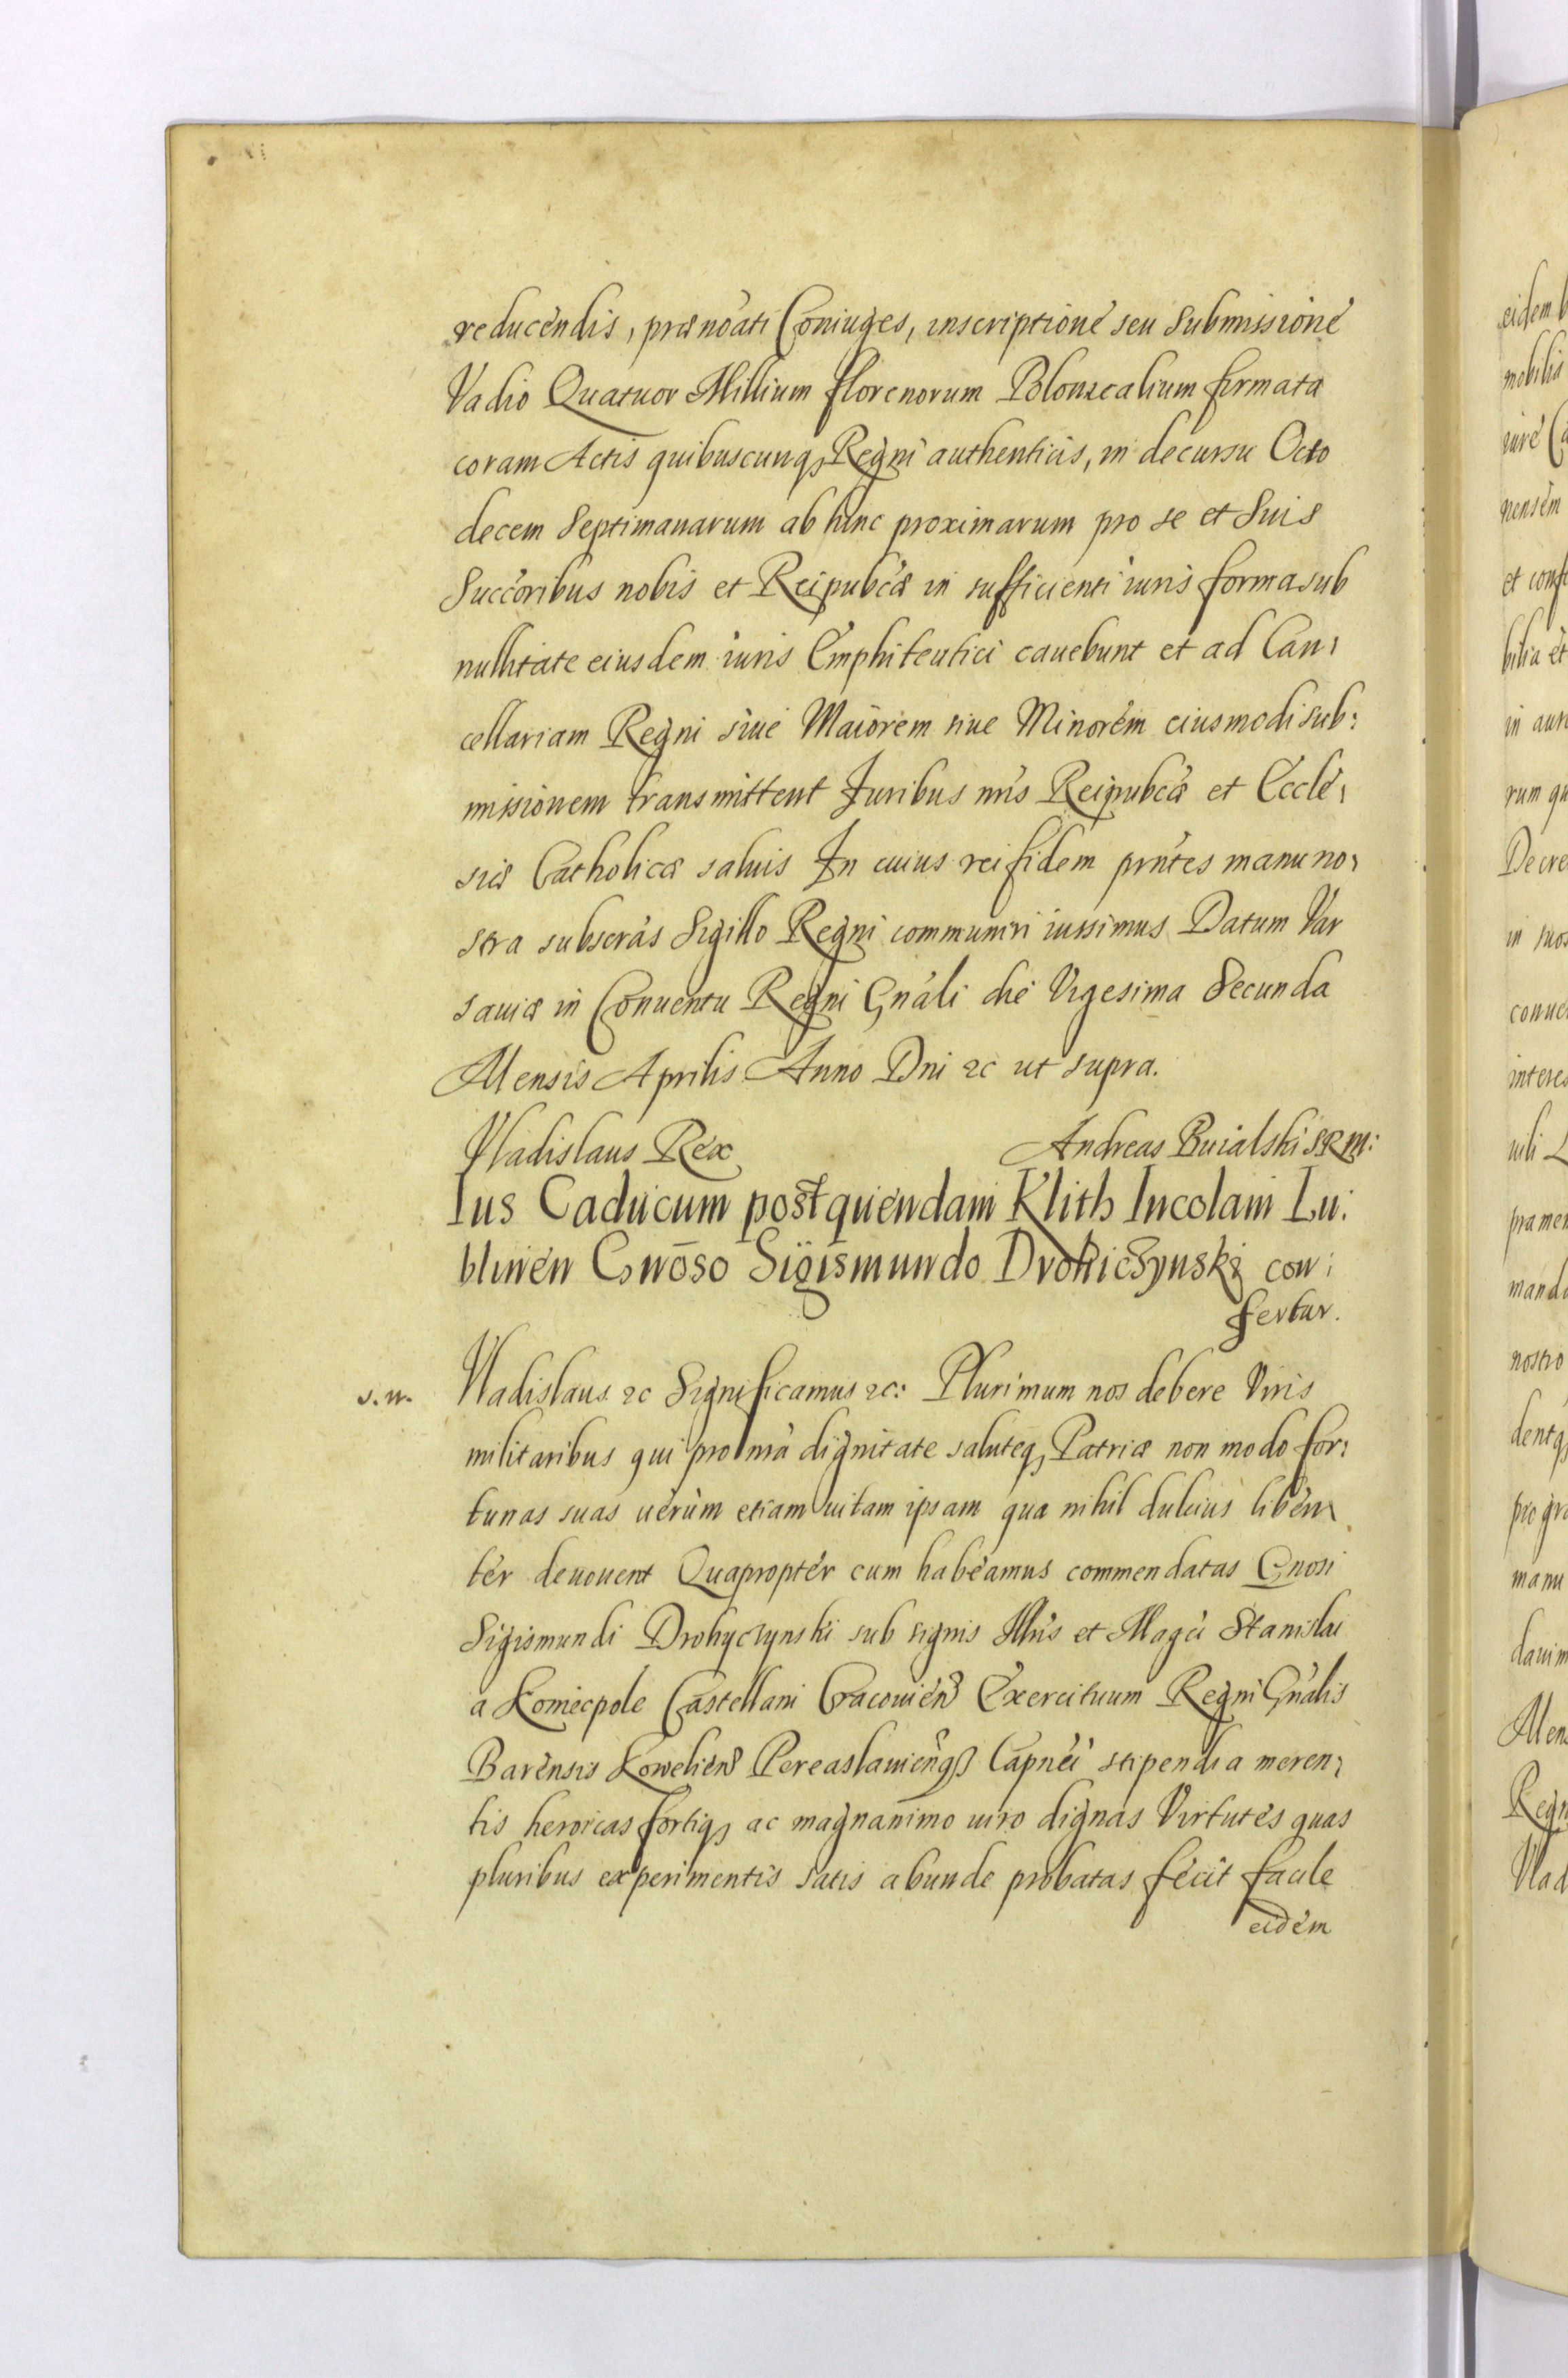 reducendis, prænoati Coniuges, inscriptione seu Submissione
Vadio Quatuor Millium florenorum Polonicalium firmata
coram Actis quibuscunq Regni authenticis, in decursu Octo
decem Septimanarum ab hinc proximarum pro se et Suis
Succoribus nobis et Reipubcæ in sufficienti iuris forma sub
nullitate eiusdem iuris Emphiteutici cauebunt et ad Can:
cellariam Regni siue Maiorem siue Minorem eiusmodi sub:
missionem transmittent Iuribus nris Reipubcæ et Eccle:
siæ Catholicæ saluis In cuius rei fidem prntes manu no:
stra subscras Sigillo Regni communiri iussimus Datum Var
sauiæ in Conuentu Regni Gnali die Vigesima Secunda
Mensis Aprilis Anno Dni 2c ut supra.
Vladislaus Rex Andreas Buialski SRM:
Ius Caducum post quendam Klith Incolam Lu:
blinen Gnoso Sigismundo Drohiczynski con:
fertur.
s. n.
Vladislaus 2c Significamus 2c: Plurimum nos debere Viris
militaribus qui pro nra dignitate saluteq Patriæ non modo for:
tunas suas uerum etiam uitam ipsam qua nihil dulcius liben
ter deuouent Quapropter cum habeamus commendatas Gnosi
Sigismundi Drohyczynski sub signis Illris et Magci Stanislai
a Koniecpole Castellani Cracouien Exercituum Regni Gnalis
Barensis Kowelien Pereaslauienq Capnei stipendia meren:
tis heroicas fortiq ac magnanimo uiro dignas Virtutes quas
pluribus experimentis satis abunde probatas fecit facile
eidem